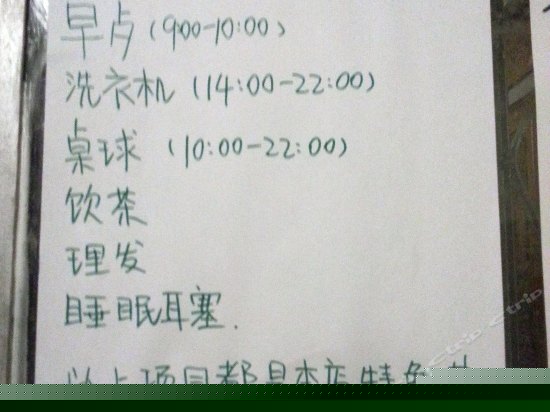 早点（9:00-10:00）
洗衣机（14:00-22:00）
桌球（10:00-22:00）
饮茶
理发
睡眠耳塞.
以上项目都是本店特色